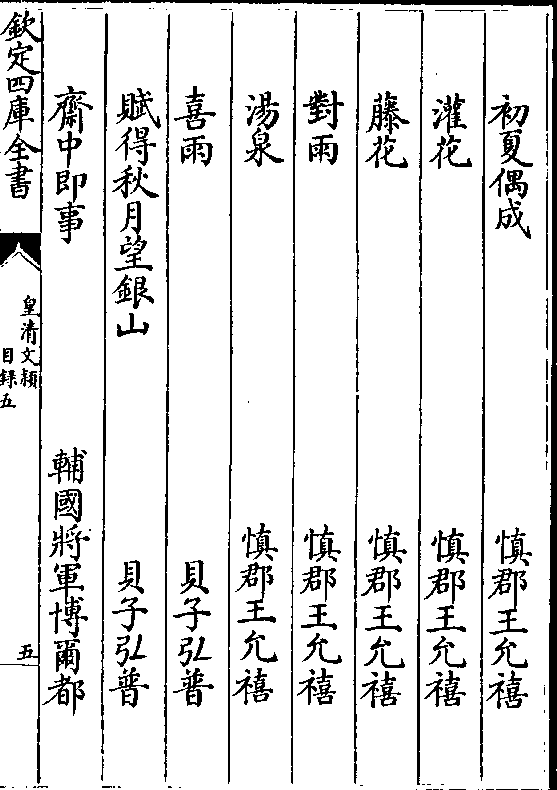 初夏偶成　慎郡王允禧
灌花　慎郡王允禧
藤花　慎郡王允禧
對雨　慎郡王允禧
湯泉　慎郡王允禧
喜雨　貝子弘普
賦得秋月望銀山　貝子弘普
齋中即事　輔國將軍博爾都
欽定四庫全書
皇清文穎
目録五
五